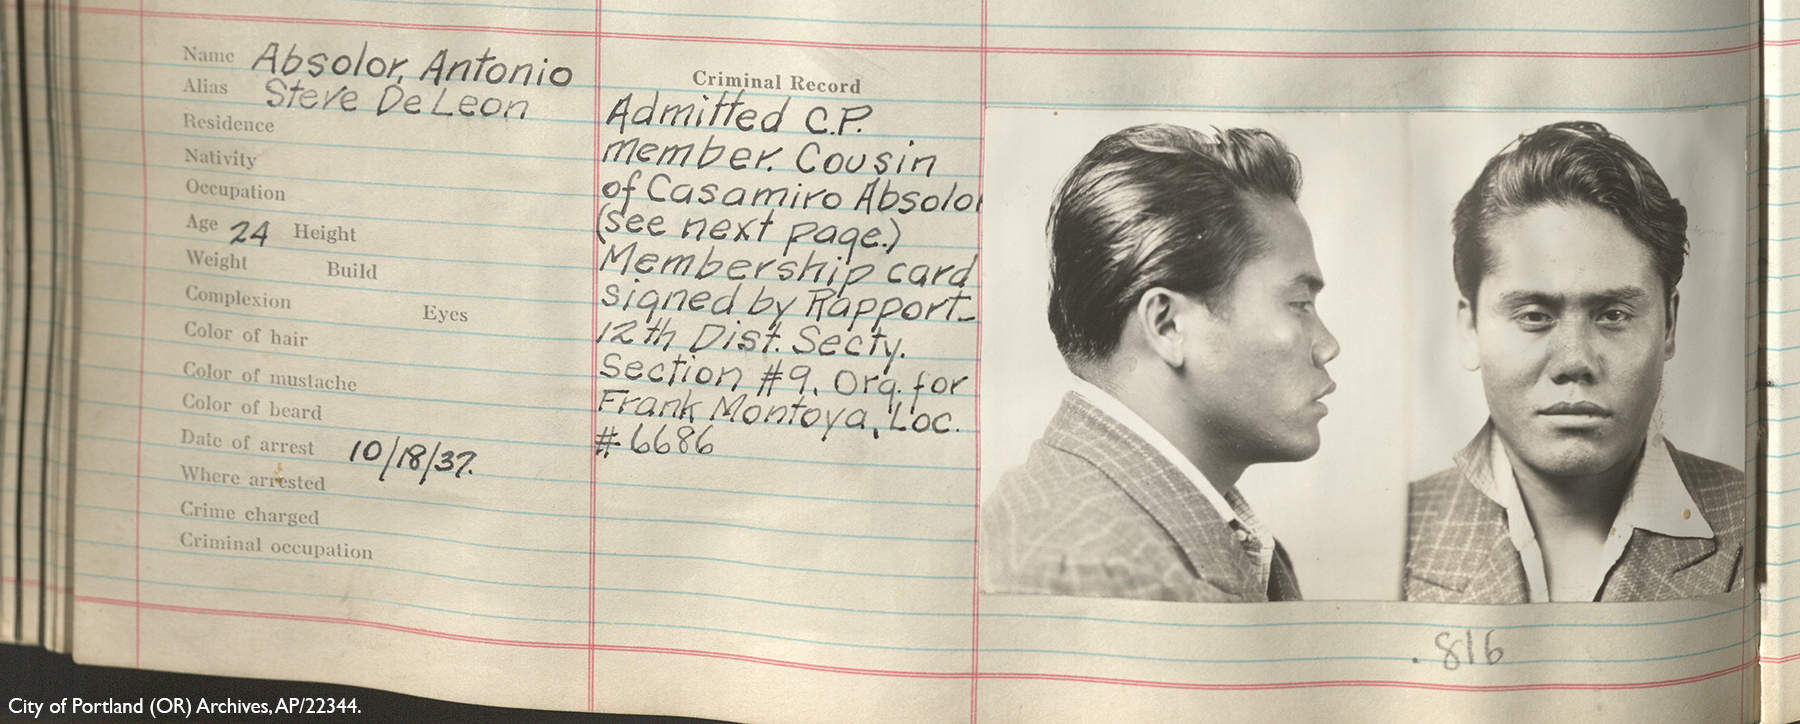 Name Absolor, Antonio
Alias Steve De Leon
Residence
Nativity
Occupation
Age 24 Height
Weight Build
Complexion Eyes
Color of hair
Color of mustache
Color of beard
Date of arrest 10/18/37.
Where arrested
Crime charged
Criminal occupation
Criminal Record
Admitted C.P.
member. Cousin
of Casamiro Absolor
(see next page.)
Membership card
signed by Rapport-
12th Dist. Secty.
Section #9. Org. for
Frank Montoya, Loc.
#6686
.816
City of Portland (OR) Archives, AP/22344.